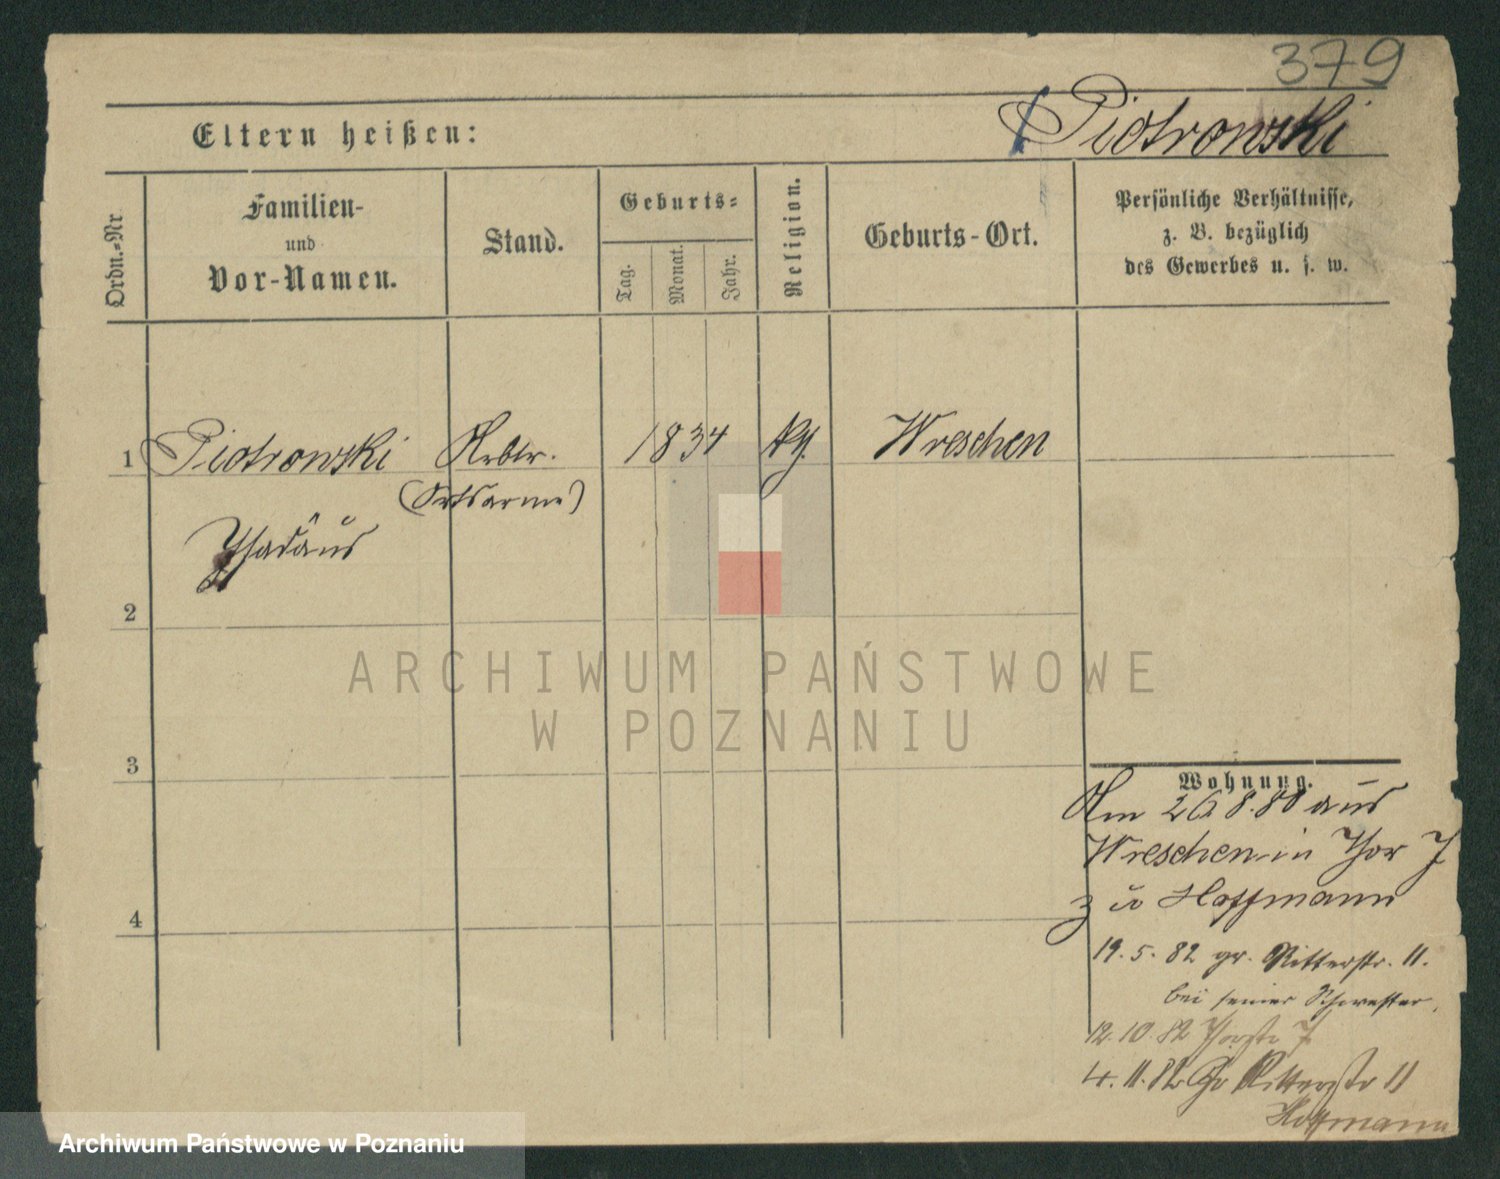 379
Eltern heißen:
Piotrowski
Ordn.-Nr
Familien-
und
Vor-Namen.
Stand.
Geburts-
Tag.
Monat.
Jahr.
Religion.
Geburts-Ort.
Persönliche Verhältnisse,
z. B. bezüglich
des Gewerbes u. s. w.
1 Piotrowski Arbtr. 1834 Wreschen
(Ortsarme)
Thadäus
2
ARCHIWUM PAŃSTWOWE
W POZNANIU
3
Wohnung.
Am 26 8. 80 aus
Wreschen in Thor 7
z u Hoffmann
4
19. 5. 82 gr. Ritterstr. 11.
bei seiner Schwester,
12. 10. 82 Thorstr 7
4. 11. 82 Gr Ritterstr 11
Hoffmann
Archiwum Państwowe w Poznaniu